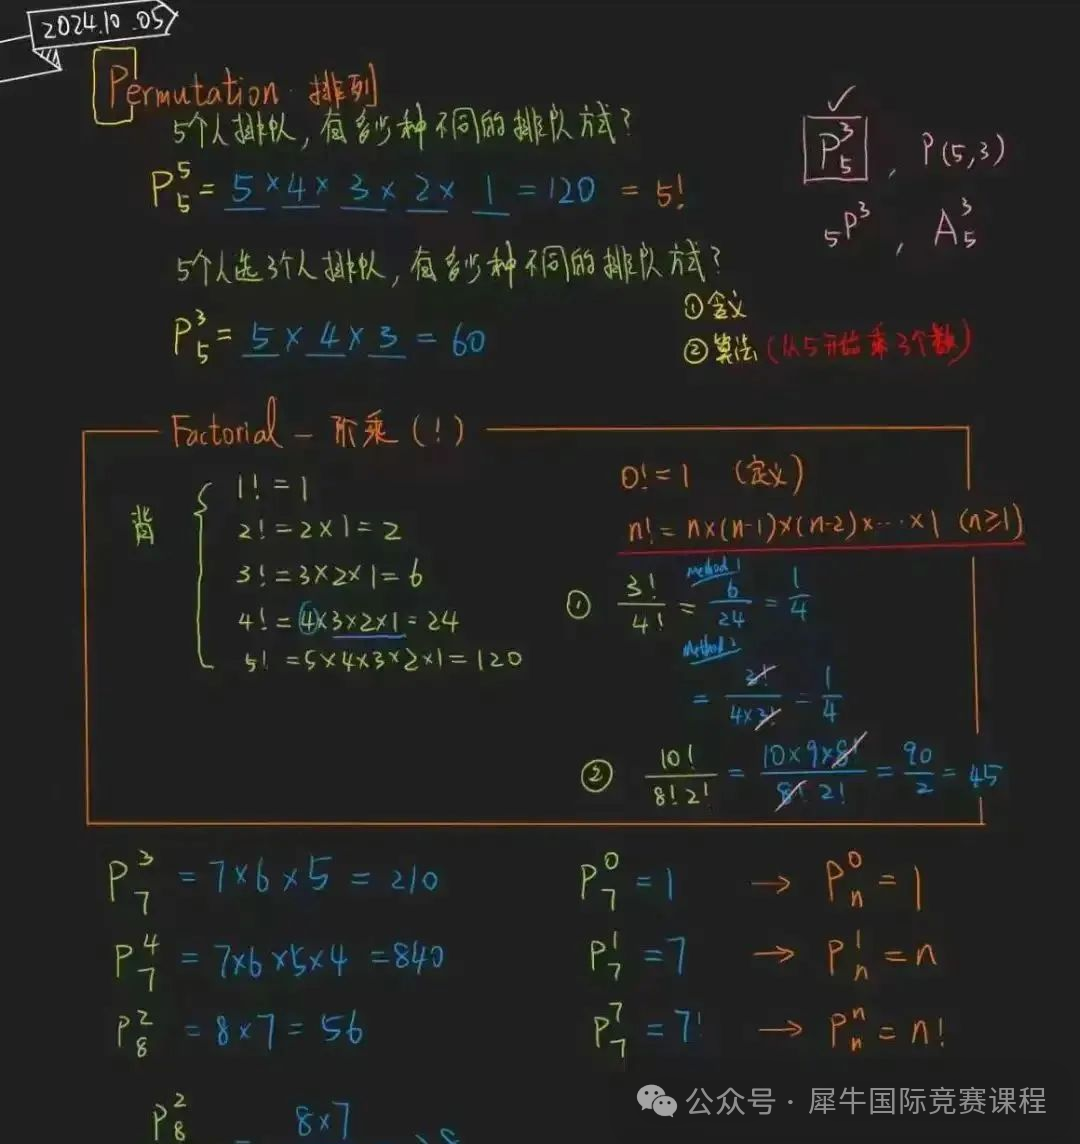 2024.10.05
Permutation 排列
5个人排队,有多少种不同的排队方式?
P₅⁵ = 5 × 4 × 3 × 2 × 1 = 120 = 5!
✓
P₅³ , P(5,3)
₅P³ , A₅³
5个人选3个人排队,有多少种不同的排队方式?
P₅³ = 5 × 4 × 3 = 60
①含义
②算法(从5开始乘3个数)
Factorial — 阶乘(!)
背
1! = 1
2! = 2×1 = 2
3! = 3×2×1 = 6
4! = 4×3×2×1 = 24
5! = 5×4×3×2×1 = 120
0! = 1 (定义)
n! = n×(n-1)×(n-2)×⋯×1 (n≥1)
Method 1
① 3!/4! = 6/24 = 1/4
Method 2
= 3!/4×3! = 1/4
② 10!/8!2! = 10×9×8!/8!2! = 90/2 = 45
P₇³ = 7×6×5 = 210
P₇⁰ = 1 → Pₙ⁰ = 1
P₇⁴ = 7×6×5×4 = 840
P₇¹ = 7 → Pₙ¹ = n
P₈² = 8×7 = 56
P₇⁷ = 7! → Pₙⁿ = n!
P₈² = 8×7
公众号·犀牛国际竞赛课程